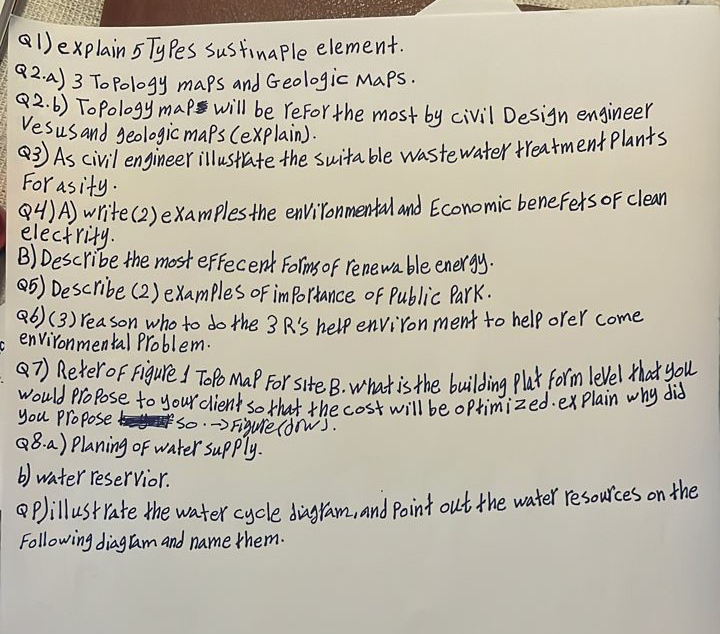 Q1) explain 5 Types sustinaple element.
Q2.a) 3 Topology maps and Geologic Maps.
Q2.b) Topology maps will be refor the most by civil Design engineer
Vesus and geologic maps (explain).
Q3) As civil engineer illustrate the suitable wastewater treatment Plants
For asity.
Q4) A) write (2) examples the environmental and Economic benefets of clean
electrity.
B) Describe the most effecent Forms of renewable energy.
Q5) Describe (2) examples of importance of Public Park.
Q6) (3) reason who to do the 3 R's help environ ment to help orer come
environmental Problem.
Q7) Reter of Figure 1 Topo Map For site B. what is the building Plat form level that you
would propose to your client so that the cost will be optimized. explain why did
you propose so. → Figure (drw).
Q8.a) Planing of water supply.
b) water reservior.
Q9) illustrate the water cycle diagram, and Point out the water resources on the
Following diagram and name them.